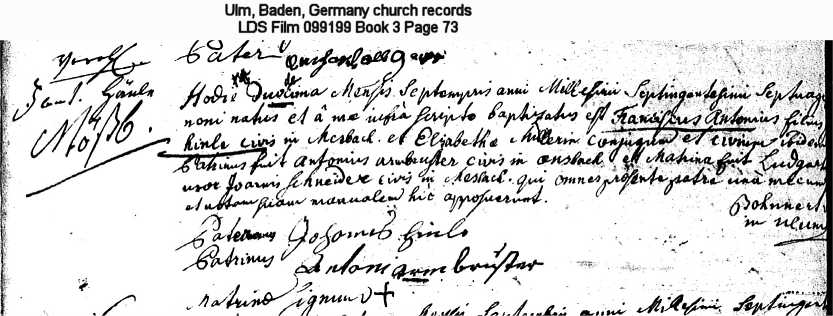 Ulm, Baden, Germany church records
LDS Film 099199 Book 3 Page 73
Pater
Hodie Duodecima Mensis Septempris anni Millesimi Septingentesimi Septuage
noni natus et à me infra scripto baptizatus est Franciscus Antonius filius
hinle civis in Mesbach et Elizabetha Müllerin conjugum et civium ibidem
Patrinus fuit Antonius armbruster civis in onsbach et Matrina fuit Ludgart
uxor Joannis Schneider civis in Mesbach qui omnes presente patre una mecum
et notam suam manualem hic apposuerunt.
Bohnnert
in ulm
Pater Johannes hinle
Patrinus Antoni armbruster
Matrina Signum +
Septembris anni Millesimi Septingent